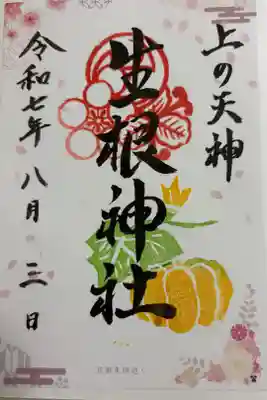 上の天神
生根神社
令和七年八月三日